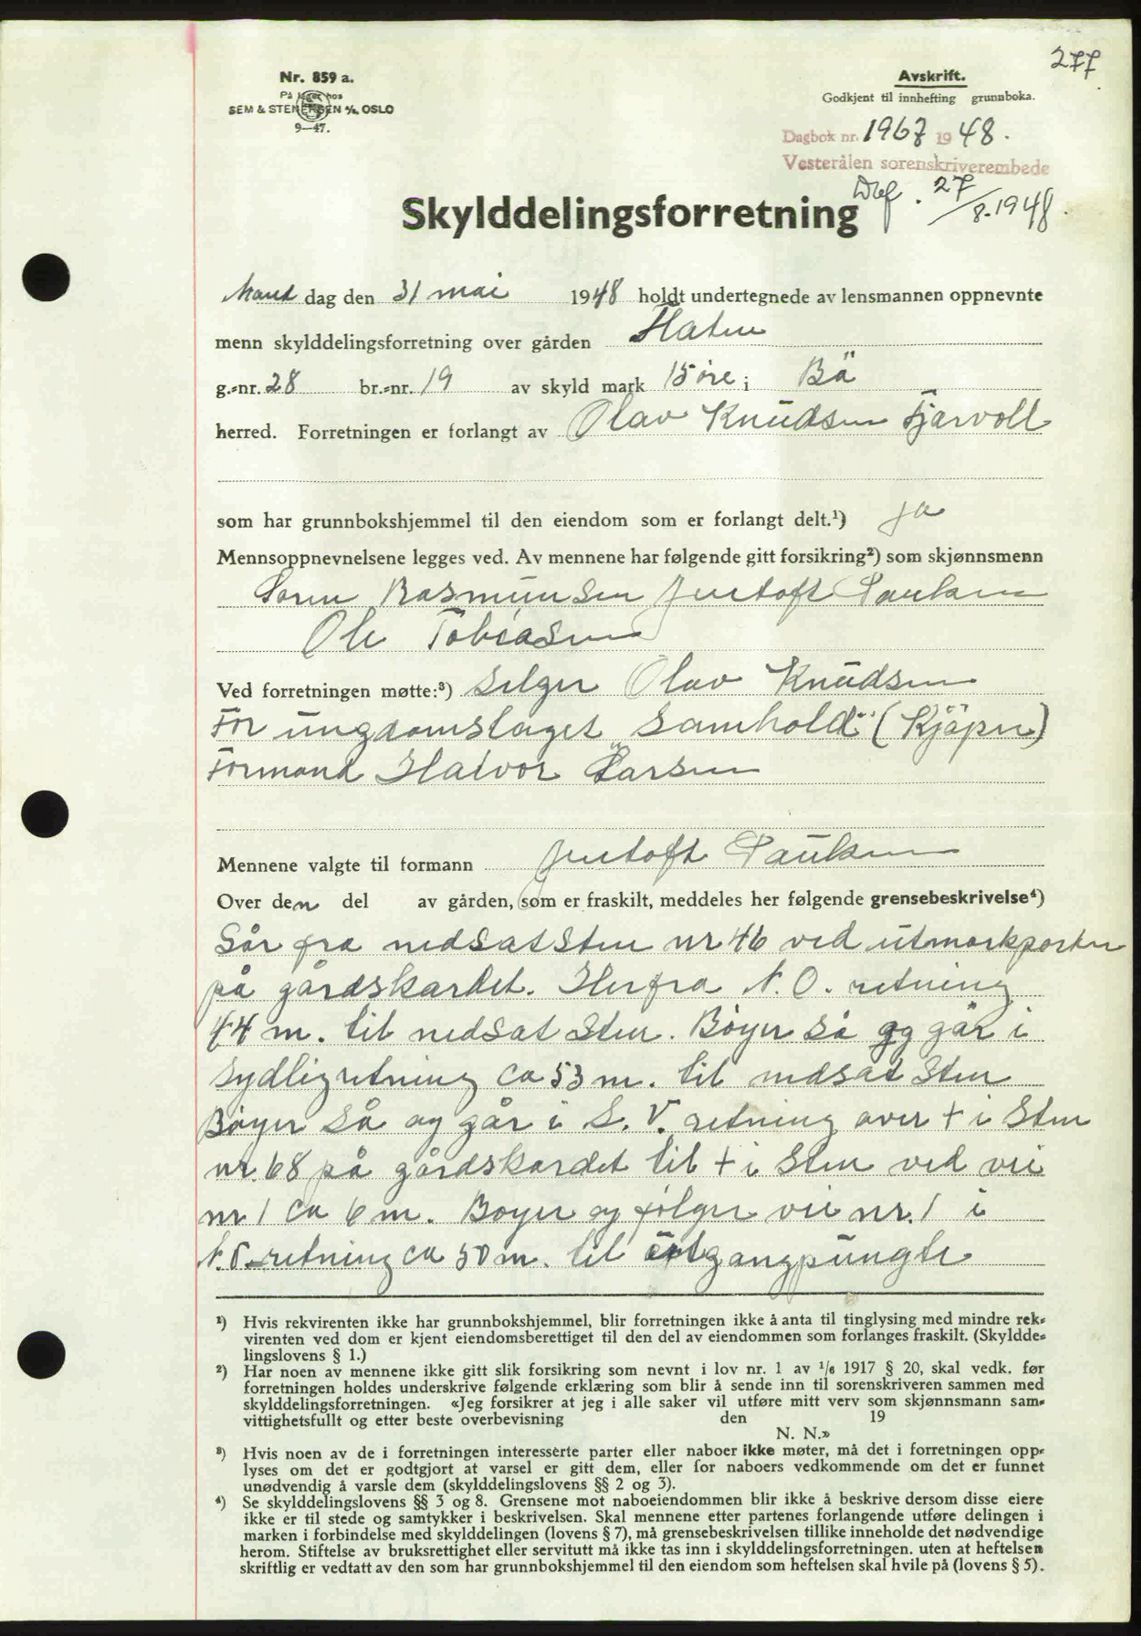 277
Nr. 859 a.
På lager hos
SEM & STENERSEN A/S, OSLO
9—47.
Avskrift.
Godkjent til innhefting grunnboka.
Dagbok nr. 1967 1948.
Vesterålen sorenskriverembede
27/8-1948.
Skylddelingsforretning
Mand dag den 31 mai 1948 holdt undertegnede av lensmannen oppnevnte
menn skylddelingsforretning over gården Haten
g.-nr. 28 br.-nr. 19 av skyld mark 15 øre i Bö
herred. Forretningen er forlangt av Olav Knudsen Fjærvoll
som har grunnbokshjemmel til den eiendom som er forlangt delt.¹) ja
Mennsoppnevnelsene legges ved. Av mennene har følgende gitt forsikring²) som skjønnsmenn
Søren Rasmunsen Jentoft Paulsen
Ole Tobiasen
Ved forretningen møtte:³) Selger Olav Knudsen
For ungdomslaget Samhold (Kjöper)
Formand Halvor Larsen
Mennene valgte til formann Jentoft Paulsen
Over den del av gården, som er fraskilt, meddeles her følgende grensebeskrivelse⁴)
Går fra nedsatsten nr 46 ved utmarkporten
på gårdskardet. Herfra N. O. retning
44 m. til nedsat Sten. Bøyer så og går i
Sydligretning ca 53 m. til nedsat Sten
Bøyer Så og går i S. V. retning over + i Sten
nr. 68 på gårdskardet til + i Sten ved vei
nr 1 ca 6 m. Bøyer og følger vei nr. 1 i
N. O. retning ca 50 m. til utgangpungte
¹) Hvis rekvirenten ikke har grunnbokshjemmel, blir forretningen ikke å anta til tinglysing med mindre rek-
virenten ved dom er kjent eiendomsberettiget til den del av eiendommen som forlanges fraskilt. (Skyldde-
lingslovens § 1.)
²) Har noen av mennene ikke gitt slik forsikring som nevnt i lov nr. 1 av 1/6 1917 § 20, skal vedk. før
forretningen holdes underskrive følgende erklæring som blir å sende inn til sorenskriveren sammen med
skylddelingsforretningen. «Jeg forsikrer at jeg i alle saker vil utføre mitt verv som skjønnsmann sam-
vittighetsfullt og etter beste overbevisning den 19
N. N.»
³) Hvis noen av de i forretningen interesserte parter eller naboer ikke møter, må det i forretningen opp-
lyses om det er godtgjort at varsel er gitt dem, eller for naboers vedkommende om det er funnet
unødvendig å varsle dem (skylddelingslovens §§ 2 og 3).
⁴) Se skylddelingslovens §§ 3 og 8. Grensene mot naboeiendommen blir ikke å beskrive dersom disse eiere
ikke er til stede og samtykker i beskrivelsen. Skal mennene etter partenes forlangende utføre delingen i
marken i forbindelse med skylddelingen (lovens § 7), må grensebeskrivelsen tillike inneholde det nødvendige
herom. Stiftelse av bruksrettighet eller servitutt må ikke tas inn i skylddelingsforretningen. uten at heftelsen
skriftlig er vedtatt av den som har grunnbokshjemmel til den eiendom som heftelsen skal hvile på (lovens § 5).